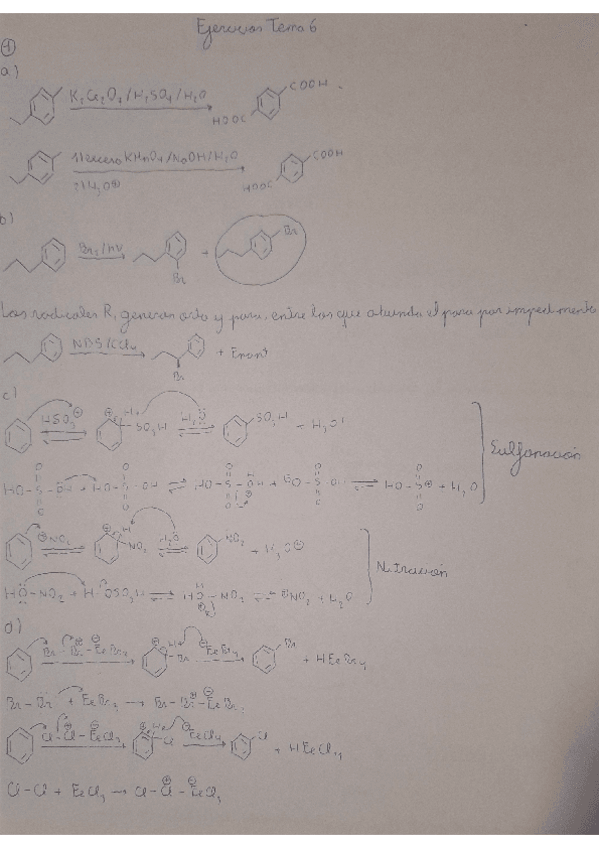 Ejercicios Tema 6
1
a)
K2Cr2O7/H2SO4/H2O
COOH
HOOC
1) exceso KMnO4/NaOH/H2O
2) H3O⊕
COOH
HOOC
b)
Br2/hν
Br
+
Br
Los radicales R, generan orto y para, entre los que abunda el para por impedimento
NBS/CCl4
Br
+ Enant
c)
HSO3⊕
H
SO3H
H2O
SO3H
+ H3O⊕
Sulfonación
HO-S-OH + HO-S-OH ⇌ HO-S-OH + O-S-OH ⇌ HO-S⊕ + H2O
⊕NO2
H
NO2
H2O
NO2
+ H3O⊕
Nitración
HO-NO2 + H-OSO3H ⇌ HO-NO2 ⇌ ⊕NO2 + H2O
d)
Br-Br-FeBr3
H
Br
FeBr4
Br
+ HFeBr4
Br-Br + FeBr3 → Br-Br-FeBr3
Cl-Cl-FeCl3
H
Cl
FeCl4
Cl
+ HFeCl4
Cl-Cl + FeCl3 → Cl-Cl-FeCl3